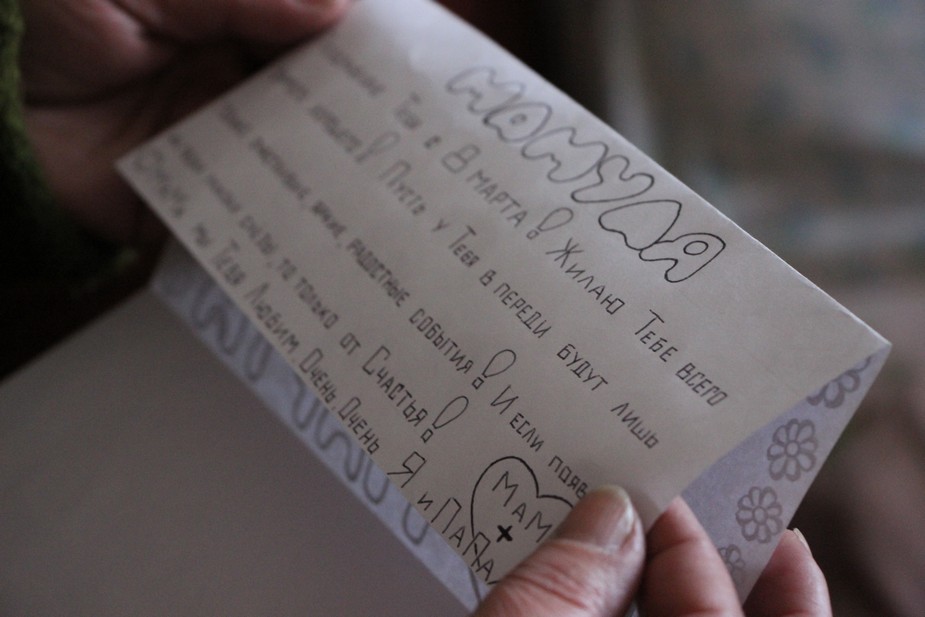 МАМУЛЯ
Тебя с 8 МАРТА! ЖИЛАЮ ТЕБЕ ВСЕГО
ХОРОШЕГО! ПУСТЬ У ТЕБЯ В ПЕРЕДИ БУДУТ ЛИШЬ
СЧАСТЛИВЫЕ, ЯРКИЕ, РАДОСТНЫЕ СОБЫТИЯ! И ЕСЛИ
СЛЁЗЫ, ТО ТОЛЬКО ОТ СЧАСТЬЯ!
МЫ ТЕБЯ ЛЮБИМ ОЧЕНЬ, ОЧЕНЬ Я И ПАПА
МАМ
+